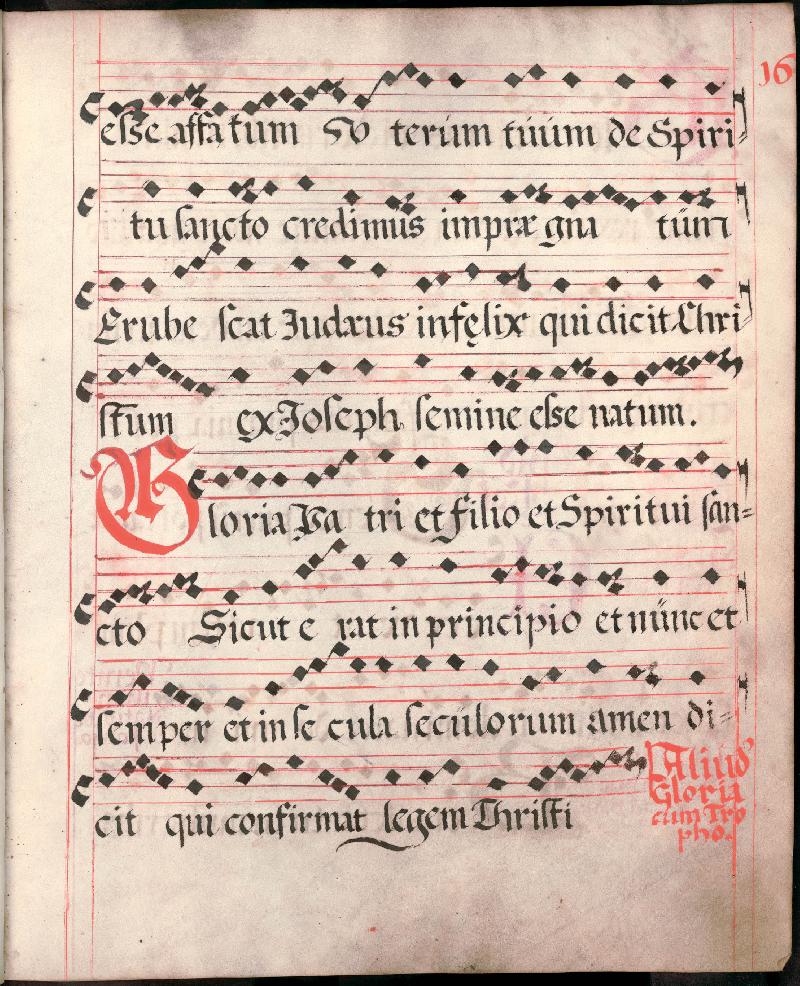 16
esse affatum So terum tuum de Spiri
tu sancto credimus impræ gna tum
Erube scat Iudæus infęlix qui dicit Chri
stum ex Ioseph semine esse natum.
Gloria Pa tri et filio et Spiritui san=
cto Sicut e rat in principio et nunc et
semper et in se cula seculorum amen di=
cit qui confirmat legem Christi
Aliud
Gloria
cum Tro
pho.